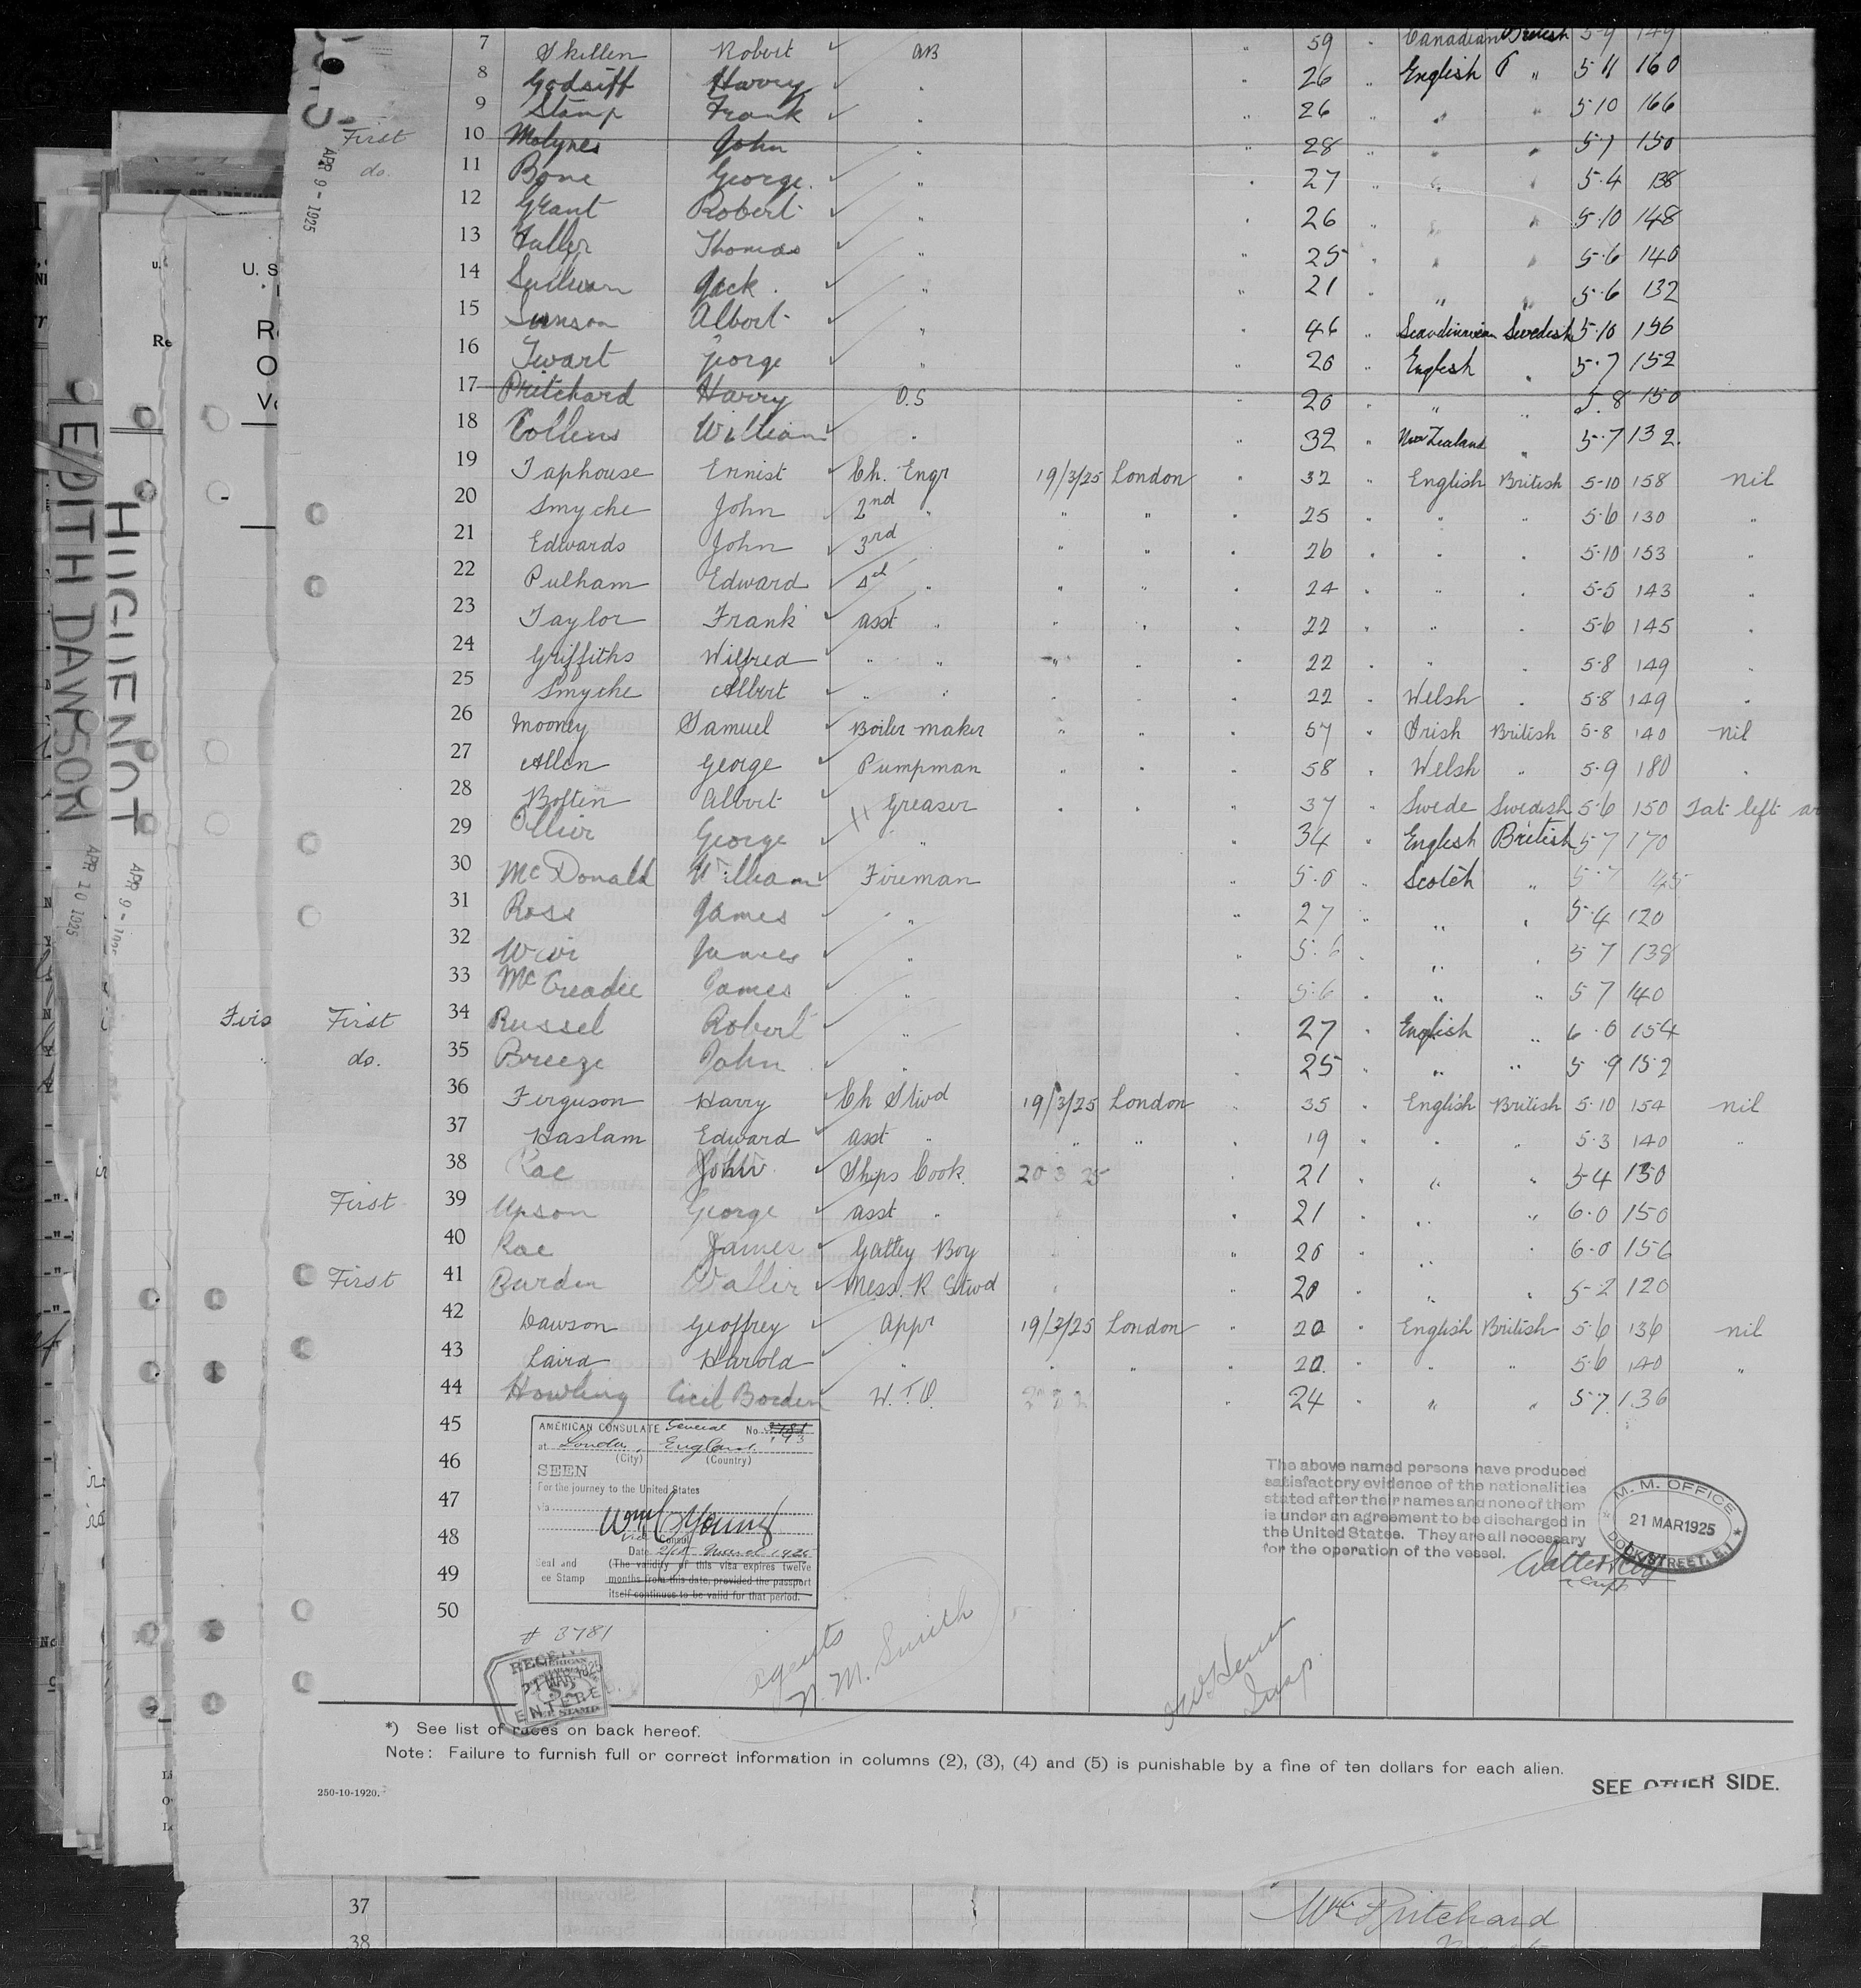 7 Skillen Robert ✓ AB " 59 " Canadian British 5-9 149
8 Godsiff Harry " " 26 " English " 5 11 160
9 Stamp Frank ✓ " " 26 " " " 5-10 166
First 10 Molynes John " " 28 " " " 5-7 150
do. 11 Bone George ✓ " " 27 " " " 5.4 138
APR 9 - 1925
12 Grant Robert ✓ " " 26 " " 5-10 148
13 Fuller Thomas ✓ " " 25 " " " 5.6 140
14 Sullivan Jack ✓ " " 21 " " " 5.6 132
15 Albert ✓ " " 46 " Scandinavian Swedish 5.10 156
16 Ewart George ✓ " " 20 " English " 5.7 152
17 Pritchard Harry O.S " 20 " " " 5.8 150
18 Collens William ✓ " " 32 " New Zealand " 5.7 132
19 Taphouse Ennist ✓ Ch. Engr 19/3/25 London " 32 " English British 5-10 158 nil
20 Smyche John ✓ 2nd " " " " 25 " " " 5.6 130 "
21 Edwards John ✓ 3rd " " " 26 " " " 5.10 153 "
22 Pulham Edward ✓ 4th " " " " 24 " " " 5-5 143 "
23 Taylor Frank ✓ asst " " " " 22 " " " 5.6 145 "
24 Griffiths Wilfred ✓ " " " " " 22 " " " 5.8 149 "
25 Smyche Albert ✓ " " " " " 22 " Welsh " 5.8 149 "
26 Mooney Samuel ✓ Boiler maker " " " 57 " Irish British 5-8 140 nil
27 Allen George ✓ Pumpman " " " 58 " Welsh " 5.9 180 "
28 Boften Albert ✓ Greaser " " " 37 " Swede Swedish 5.6 150 Tat left ar
29 Ollier George ✓ " " 34 " English British 5-7 170
30 McDonald William ✓ Fireman " 5.0 " Scotch " 5.7 145
31 Ross James ✓ " " 27 " " " 5.4 120
32 Weir James ✓ " " 5.6 " " " 5 7 138
33 McCreadie James ✓ " " 5.6 " " " 5 7 140
First 34 Russel Robert ✓ " " 27 " English " 6.0 154
do. 35 Breeze John ✓ " " 25 " " " 5.9 152
36 Ferguson Harry ✓ Ch Stwd 19/3/25 London " 35 " English British 5.10 154 nil
37 Haslam Edward ✓ asst " " " " 19 " " " 5.3 140 "
38 Rae John ✓ Ships Cook 20 3 25 " 21 " " " 5-4 130
First 39 Upson George ✓ asst " " " 21 " " " 6.0 150
40 Rae James ✓ Galley Boy " " 20 " " " 6.0 156
First 41 Burden Walter ✓ Mess. R Stwd " " 20 " " " 5-2 120
42 Dawson Geoffrey ✓ Appr 19/3/25 London " 20 " English British 5.6 136 nil
43 Laird Harold ✓ " " " " 20 " " " 5.6 140 "
44 Howling Cecil Borden ✓ W.T.O. " 24 " " " 5.7 136
45
46
47
48
49
50
AMERICAN CONSULATE General No 3781
at London, England
(City) (Country)
SEEN
For the journey to the United States
via
Wm C Young
Vice Consul
Date 21st March 1925
Seal and
ee Stamp
(The validity of this visa expires twelve
months from this date, provided the passport
itself continues to be valid for that period.
The above named persons have produced
satisfactory evidence of the nationalities
stated after their names and none of them
is under an agreement to be discharged in
the United States. They are all necessary
for the operation of the vessel.
M. M. OFFICE
21 MAR 1925
DOCK STREET, E.1
# 3781
RECEIVED
AMERICAN
21 MAR. 1925
ENTERED
FEE STAMP
agents
N. M. Smith
Insp.
*) See list of races on back hereof.
Note: Failure to furnish full or correct information in columns (2), (3), (4) and (5) is punishable by a fine of ten dollars for each alien.
250-10-1920.
SEE OTHER SIDE.
EDITH DAWSON
APR 10 1925
HUGUENOT
APR 9 -
U. S
Re
37
38
Wm Pritchard